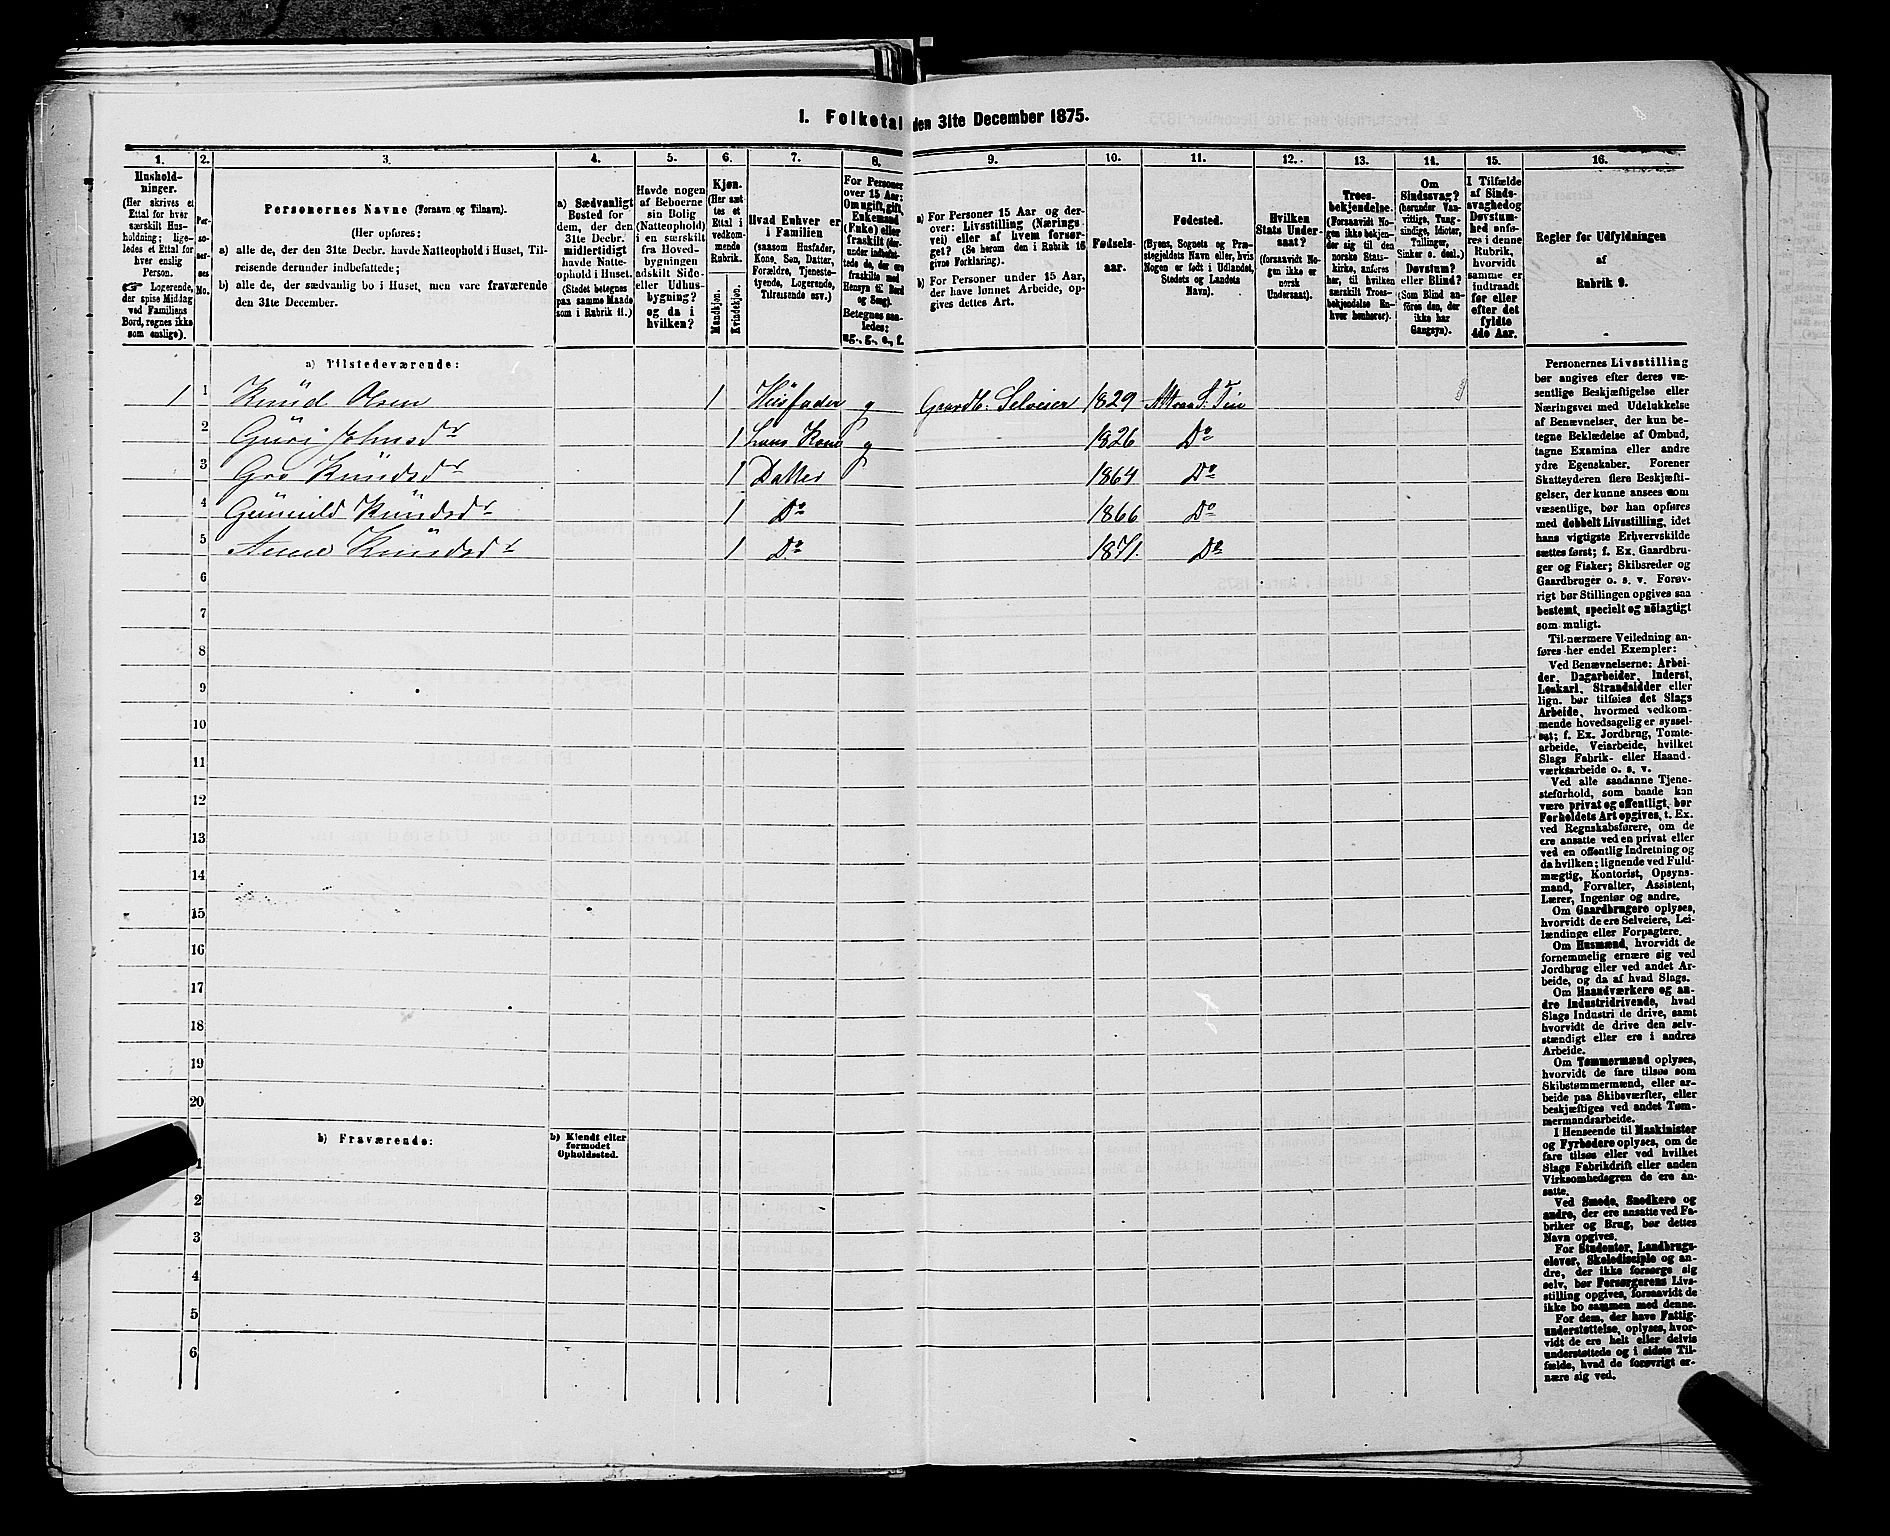 I. Folketal den 31te December 1875.
1. 2. 3. 4. 5. 6. 7. 8. 9. 10. 11. 12. 13. 14. 15. 16.
Hushold-
ninger.
(Her skrives et
Ettal for hver
særskilt Hus-
holdning; lige-
ledes et Ettal for
hver enslig
Person.
☞ Logerende,
der spise Middag
ved Familiens
Bord, regnes ikke
som enslige).
Per-
so-
ner-
nes
No.
Personernes Navne (Fornavn og Tilnavn).
(Her opføres:
a) alle de, der den 31te Decbr. havde Natteophold i Huset, Til-
reisende derunder indbefattede;
b) alle de, der sædvanlig bo i Huset, men vare fraværende
den 31te December.
a) Sædvanligt
Bosted for
dem, der den
31te Decbr.
midlertidigt
havde Natte-
ophold i Huset.
(Stedet betegnes
paa samme Maade
som i Rubrik 11.)
Havde nogen
af Beboerne
sin Bolig
(Natteophold)
i en særskilt
fra Hoved-
bygningen
adskilt Side-
eller Udhus-
bygning?
og da i
hvilken?
Kjøn.
(Her sæt-
tes et
Ettal i
vedkom-
mende
Rubrik.
Mandkjøn.
Kvindekjøn.
Hvad Enhver er
i Familien
(saasom Husfader,
Kone, Søn, Datter,
Forældre, Tjeneste-
tyende, Logerende,
Tilreisende osv.)
For Personer
over 15 Aar:
Om ugift, gift,
Enkemand
(Enke) eller
fraskilt (der-
under indbefat-
tede de, der ere
fraskilte med
Hensyn til Bord
og Seng).
Betegnes saa-
ledes:
ug., g., e., f.
a) For Personer 15 Aar og der-
over: Livsstilling (Nærings-
vei) eller af hvem forsør-
get? (Se herom den i Rubrik 16
givne Forklaring).
b) For Personer under 15 Aar,
der have lønnet Arbeide, op-
gives dettes Art.
Fødsels-
aar.
Fødested.
(Byens, Sognets og Præ-
stegjeldets Navn eller, hvis
Nogen er født i Udlandet,
Stedets og Landets
Navn).
Hvilken
Stats Under-
saat?
(forsaavidt No-
gen ikke er
norsk
Undersaat).
Troes-
bekjendelse.
(Forsaavidt No-
gen ikke bekjen-
der sig til den
norske Stats-
kirke, anføres
her, til hvilken
særskilt Troes-
bekjendelse En-
hver henhører).
Om
Sindssvag?
(herunder Van-
vittige, Tung-
sindige, Idioter,
Tullinger,
Sinker o. desl.)
Døvstum?
eller Blind?
(Som Blind an-
føres den, der
ikke har
Gangsyn).
I Tilfælde
af Sinds-
svaghed og
Døvstum-
hed anfø-
res i denne
Rubrik,
hvorvidt
samme er
indtraadt
før eller
efter det
fyldte
4de Aar.
Regler for Udfyldningen
af
Rubrik 9.
a) Tilstedeværende:
1 1 Knüd Olsen 1 Hüsfader g Gaardb. Selveier 1829 S. Tin
2 Güri Johnsdr 1 hans Kone g 1826 Do
3 Gro Knüdsdr 1 Datter 1864 Do
4 Günnild Knüdsdr 1 Do 1866 Do
5 Anne Knüdsdr 1 Do 1871. Do
6
7
8
9
10
11
12
13
14
15
16
17
18
19
20
b) Fraværende:
b) Kjendt eller
formodet
Opholdssted.
1
2
3
4
5
6
Personernes Livsstilling
bør angives efter deres væ-
sentlige Beskjæftigelse eller
Næringsvei med Udelukkelse
af Benævnelser, der kun be-
tegne Beklædelse af Ombud,
tagne Examina eller andre
ydre Egenskaber. Forener
Skatteyderen flere Beskjæfti-
gelser, der kunne ansees som
væsentlige, bør han opføres
med dobbelt Livsstilling, idet
hans vigtigste Erhvervskilde
sættes først; f. Ex. Gaardbru-
ger og Fisker; Skibsreder og
Gaardbruger o. s. v. Forøv-
rigt bør Stillingen opgives saa
bestemt, specielt og nøiagtigt
som muligt.
Til nærmere Veiledning an-
føres her endel Exempler:
Ved Benævnelserne: Arbei-
der, Dagarbeider, Inderst,
Løskarl, Strandsidder eller
lign. bør tilføies det Slags
Arbeide, hvormed vedkom-
mende hovedsagelig er syssel-
sat; f. Ex. Jordbrug, Tomte-
arbeide, Veiarbeide, hvilket
Slags Fabrik- eller Haand-
værksarbeide o. s. v.
Ved alle saadanne Tjene-
steforhold, som baade kan
være privat og offentligt, bør
Forholdets Art opgives, f. Ex.
ved Regnskabsførere, om de
ere ansatte ved en privat eller
ved en offentlig Indretning og
da hvilken; lignende ved Fuld-
mægtig, Kontorist, Opsyns-
mand, Forvalter, Assistent,
Lærer, Ingeniør og andre.
Om Gaardbrugere oplyses,
hvorvidt de ere Selveiere, Lei-
lændinge eller Forpagtere.
Om Husmænd, hvorvidt de
fornemmelig ernære sig ved
Jordbrug eller ved andet Ar-
beide, og da af hvad Slags.
Om Haandværkere og an-
dre Industridrivende, hvad
Slags Industri de drive, samt
hvorvidt de drive den selv-
stændigt eller ere i andres
Arbeide.
Om Tømmermænd oplyses,
hvorvidt de fare tilsøs som
Skibstømmermænd, eller ar-
beide paa Skibsværfter, eller
beskjæftiges ved andet Tøm-
mermandsarbeide.
I Henseende til Maskinister
og Fyrbødere oplyses, om de
fare tilsøs eller ved hvilket
Slags Fabrikdrift eller anden
Virksomhedsgren de ere an-
satte.
Ved Smede, Snedkere og
andre, der ere ansatte ved Fa-
briker og Brug, bør dettes
Navn opgives.
For Studenter, Landbrugs-
elever, Skoledisciple og an-
dre, der ikke forsørge sig
selv, bør Forsørgerens Livs-
stilling opgives, forsaavidt de
ikke bo sammen med denne.
For dem, der have Fattig-
understøttelse, oplyses, hvor-
vidt de ere helt eller delvis
understøttede og i sidste Til-
fælde, hvad de forøvrigt er-
nære sig ved.